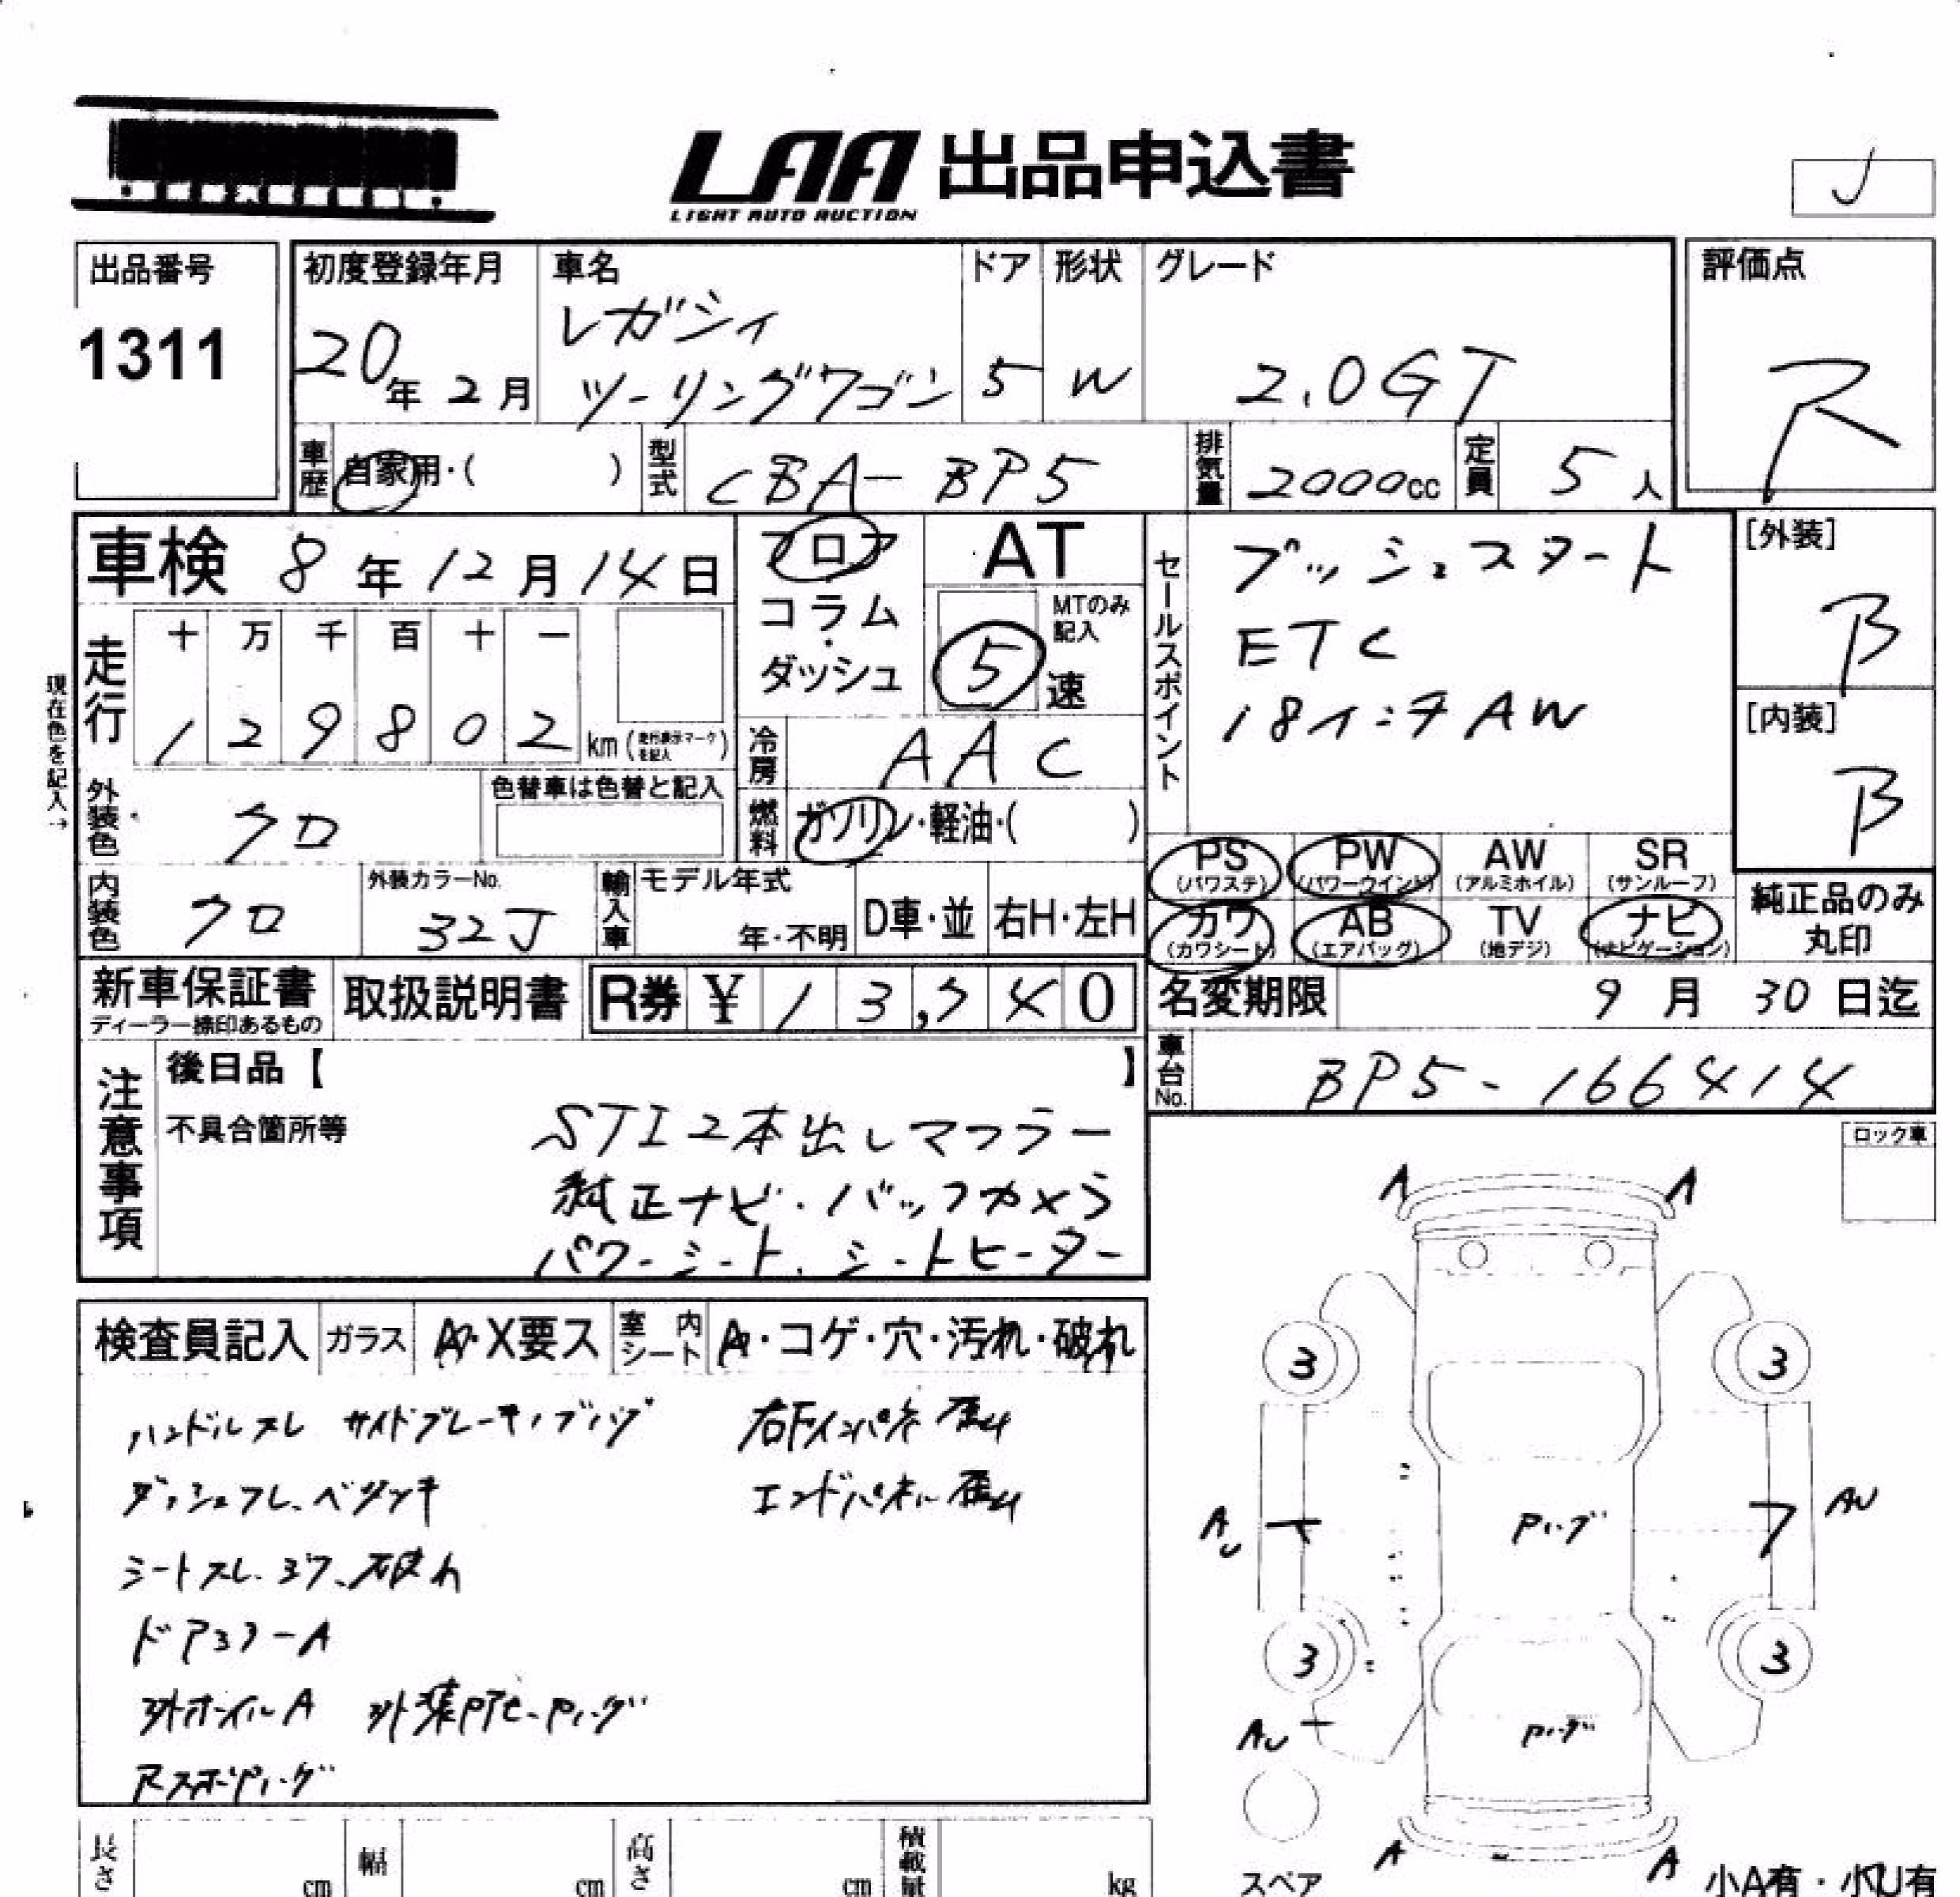 LAA 出品申込書
LIGHT AUTO AUCTION
J
出品番号
1311
初度登録年月
20年 2月
車名
レガシィ
ツーリングワゴン
ドア
5
形状
W
グレード
2.0GT
評価点
R
車歴
自家用・( )
型式
CBA-BP5
排気量
2000cc
定員
5人
車検 8年12月14日
現在色を記入→
走行
十 万 千 百 十 一
1 2 9 8 0 2 km (走行表示マークを記入)
フロア
コラム
・
ダッシュ
AT
MTのみ
記入
5 速
冷房
AAC
燃料
ガソリン・軽油・( )
セールスポイント
プッシュスタート
ETC
18インチAW
[外装]
B
[内装]
B
外装色
クロ
色替車は色替と記入
内装色
クロ
外装カラーNo.
32J
輸入車
モデル年式
年・不明
D車・並
右H・左H
PS
(パワステ)
PW
(パワーウインド)
AW
(アルミホイル)
SR
(サンルーフ)
カワ
(カワシート)
AB
(エアバッグ)
TV
(地デジ)
ナビ
(ナビゲーション)
純正品のみ
丸印
新車保証書
ディーラー捺印あるもの
取扱説明書
R券 ¥ 1 3,
4 0
名変期限 9月 30日迄
車台No.
BP5-166414
注意事項
後日品【 】
不具合箇所等
STI2本出しマフラー
純正ナビ・バックカメラ
パワーシート、シートヒーター
ロック車
検査員記入
ガラス
A・X要ス
室内シート
A・コゲ・穴・汚れ・破れ
ハンドルスレ
サイドブレーキノブハゲ
右Fインパネ歪み
エンドパネル歪み
ベタツキ
シートスレ、
破れ
ドアミラーA
ホイルA
A A
3 3
AU
AU
3 3
AU
A A
スペア
小A有・小U有
長さ cm
幅 cm
高さ cm
積載量 kg